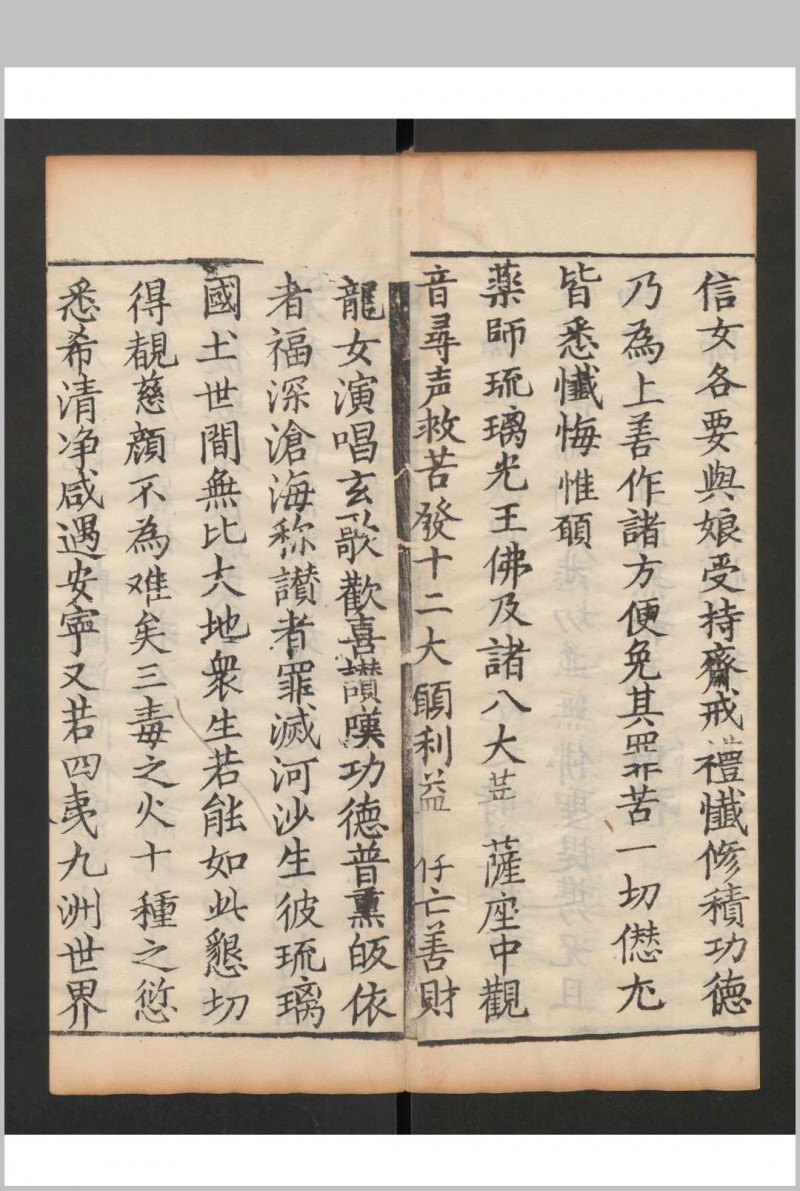 信女各要與娘受持齋戒禮懺修積功德
乃為上善作諸方便免其罪苦一切愆尤
皆悉懺悔惟願
藥師琉璃光王佛及諸八大菩薩座中觀
音尋声救苦發十二大願利益仔亡善財
龍女演唱玄歌歡喜讃嘆功德普薰皈依
者福深滄海称讃者罪滅河沙生彼琉璃
國土世間無比大地衆生若能如此懇切
得覩慈顏不為难矣三毒之火十種之愆
悉希清净咸遇安寧又若四夷九洲世界